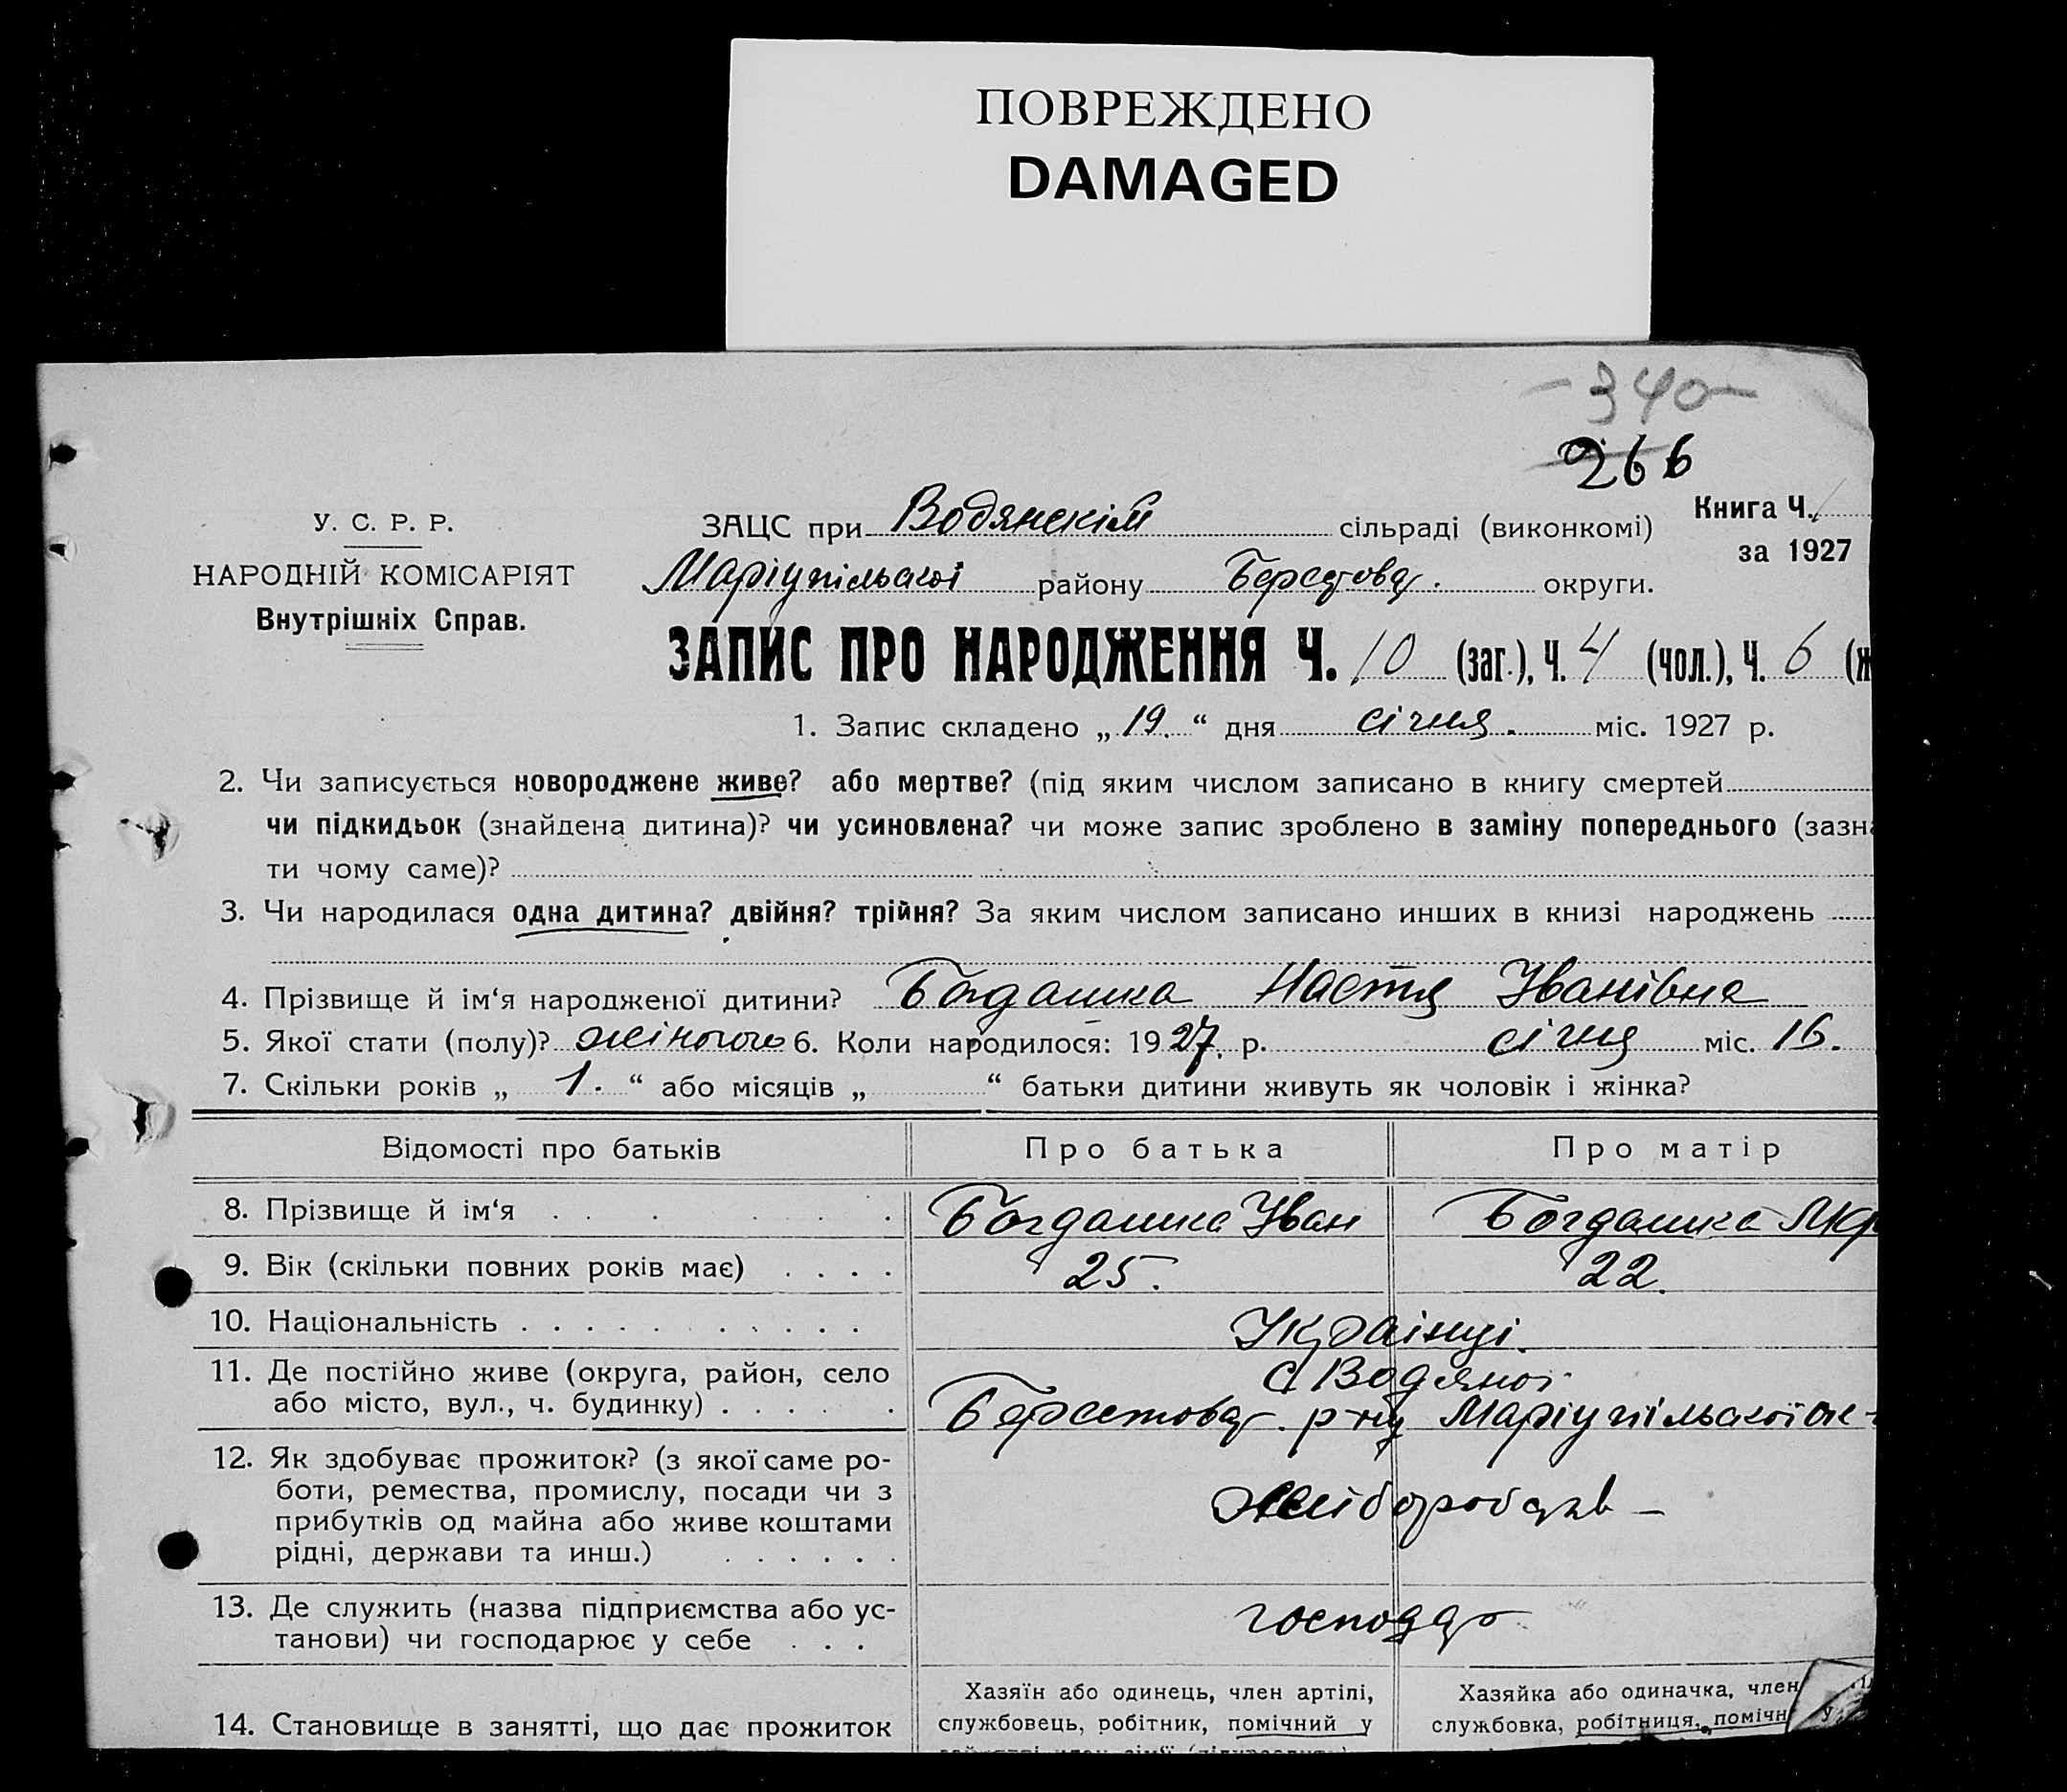 ПОВРЕЖДЕНО
DAMAGED
-340-
266
У. С. Р. Р.
НАРОДНІЙ КОМІСАРІЯТ
Внутрішніх Справ.
ЗАЦС при Водянскій сільраді (виконкомі)
Книга Ч.
за 1927
Маріупільської району Берестов. округи.
ЗАПИС ПРО НАРОДЖЕННЯ Ч. 10 (заг.), Ч. 4 (чол.), Ч. 6 (ж
1. Запис складено „ 19. “ дня січня. міс. 1927 р.
2. Чи записується новороджене живе? або мертве? (під яким числом записано в книгу смертей
чи підкидьок (знайдена дитина)? чи усиновлена? чи може запис зроблено в заміну попереднього (зазна
ти чому саме)?
3. Чи народилася одна дитина? двійня? трійня? За яким числом записано инших в книзі народжень
4. Прізвище й ім‘я народженої дитини? Богдашка Настя Іванівна
5. Якої стати (полу)? жіночого 6. Коли народилося: 1927. р. січня міс. 16.
7. Скільки років „ 1. “ або місяців „ “ батьки дитини живуть як чоловік і жінка?
Відомості про батьків Про батька Про матір
8. Прізвище й ім‘я Богдашка Іван Богдашка
9. Вік (скільки повних років має) 25. 22.
10. Національність Українці.
11. Де постійно живе (округа, район, село
або місто, вул., ч. будинку)
с. Водяної
Берестов. р-ну Маріупільської ок-
12. Як здобуває прожиток? (з якої саме ро-
боти, ремества, промислу, посади чи з
прибутків од майна або живе коштами
рідні, держави та инш.)
хлібороб
13. Де служить (назва підприємства або ус-
танови) чи господарює у себе
господар
14. Становище в занятті, що дає прожиток
Хазяїн або одинець, член артілі,
службовець, робітник, помічний у
Хазяйка або одиначка, член
службовка, робітниця, помічн